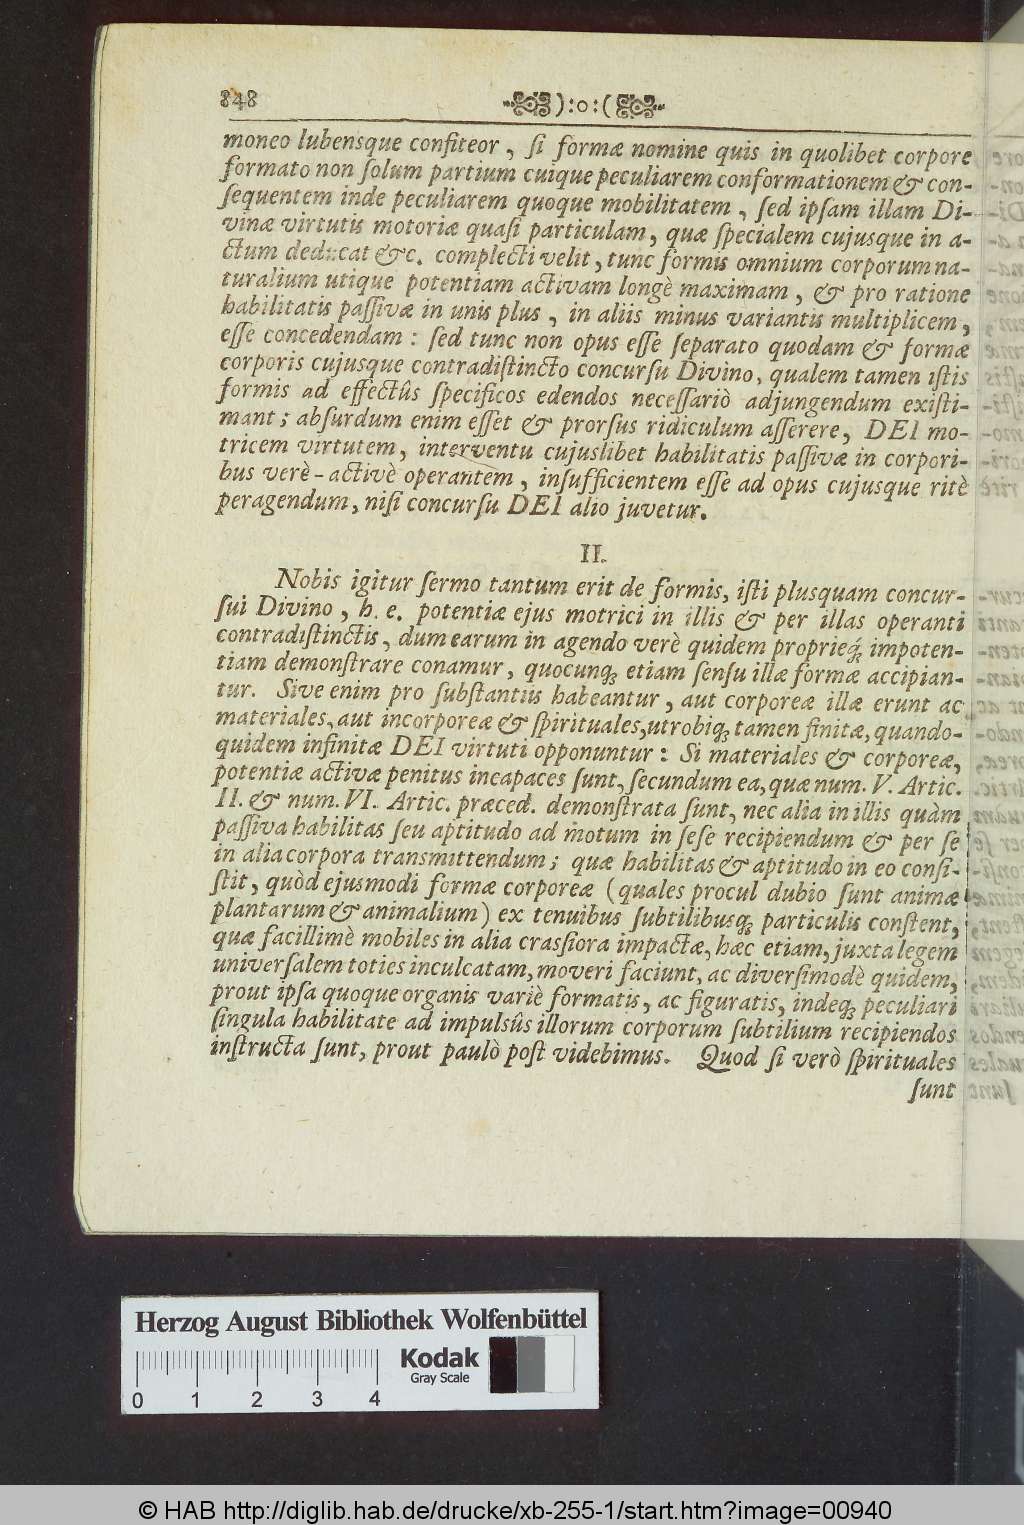 848 ):o:(
moneo lubensque confiteor, ſi formæ nomine quis in quolibet corpore
formato non ſolum partium cuique peculiarem conformationem & con-
ſequentem inde peculiarem quoque mobilitatem, ſed ipſam illam Di-
vinæ virtutis motoriæ quaſi particulam, quæ ſpecialem cujusque in a-
ctum deducat &c. complecti velit, tunc formis omnium corporum na-
turalium utique potentiam activam longè maximam, & pro ratione
habilitatis paſſivæ in unis plus, in aliis minus variantis multiplicem,
eſſe concedendam: ſed tunc non opus eſſe ſeparato quodam & formæ
corporis cujusque contradiſtincto concurſu Divino, qualem tamen iſtis
formis ad effectûs ſpecificos edendos neceſſariò adjungendum exiſti-
mant; abſurdum enim eſſet & prorſus ridiculum aſſerere, DEI mo-
tricem virtutem, interventu cujuslibet habilitatis paſſivæ in corpori-
bus verè-activè operantem, inſufficientem eſſe ad opus cujusque ritè
peragendum, niſi concurſu DEI alio juvetur.
II.
Nobis igitur ſermo tantum erit de formis, iſti plusquam concur-
ſui Divino, h. e. potentiæ ejus motrici in illis & per illas operanti
contradiſtinctis, dum earum in agendo verè quidem proprieq́; impoten-
tiam demonſtrare conamur, quocunq; etiam ſenſu illæ formæ accipian-
tur. Sive enim pro ſubſtantiis habeantur, aut corporeæ illæ erunt ac
materiales, aut incorporeæ & ſpirituales, utrobiq; tamen finitæ, quando-
quidem infinitæ DEI virtuti opponuntur: Si materiales & corporeæ,
potentiæ activæ penitus incapaces ſunt, ſecundum ea, quæ num. V. Artic.
II. & num. VI. Artic. præced. demonſtrata ſunt, nec alia in illis quàm
paſſiva habilitas ſeu aptitudo ad motum in ſeſe recipiendum & per ſe
in alia corpora transmittendum; quæ habilitas & aptitudo in eo conſi-
ſtit, quòd ejusmodi formæ corporeæ (quales procul dubio ſunt animæ
plantarum & animalium) ex tenuibus ſubtilibusq; particulis conſtent,
quæ facillimè mobiles in alia crasſiora impactæ, hæc etiam, juxta legem
univerſalem toties inculcatam, moveri faciunt, ac diverſimodè quidem,
prout ipſa quoque organis variè formatis, ac figuratis, indeq; peculiari
ſingula habilitate ad impulsûs illorum corporum ſubtilium recipiendos
inſtructa ſunt, prout paulò poſt videbimus. Quod ſi verò ſpirituales
ſunt
Herzog August Bibliothek Wolfenbüttel
Kodak
Gray Scale
0 1 2 3 4
© HAB http://diglib.hab.de/drucke/xb-255-1/start.htm?image=00940